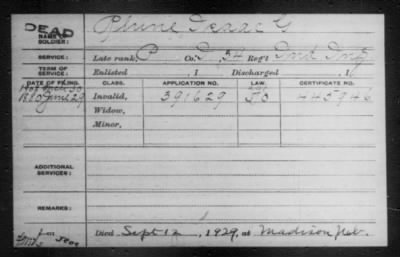 DEAD
NAME OF SOLDIER: Phine, Isaac G
SERVICE: Late rank, P Co. I, 34 Reg't Ind Inf
TERM OF SERVICE: Enlisted , 1 Discharged , 1
DATE OF FILING. CLASS. APPLICATION NO. LAW. CERTIFICATE NO.
1880 June 29 Invalid, 391629 445946
Widow,
Minor,
ADDITIONAL SERVICES:
REMARKS:
Died Sept 12, 1929, at Madison Neb.